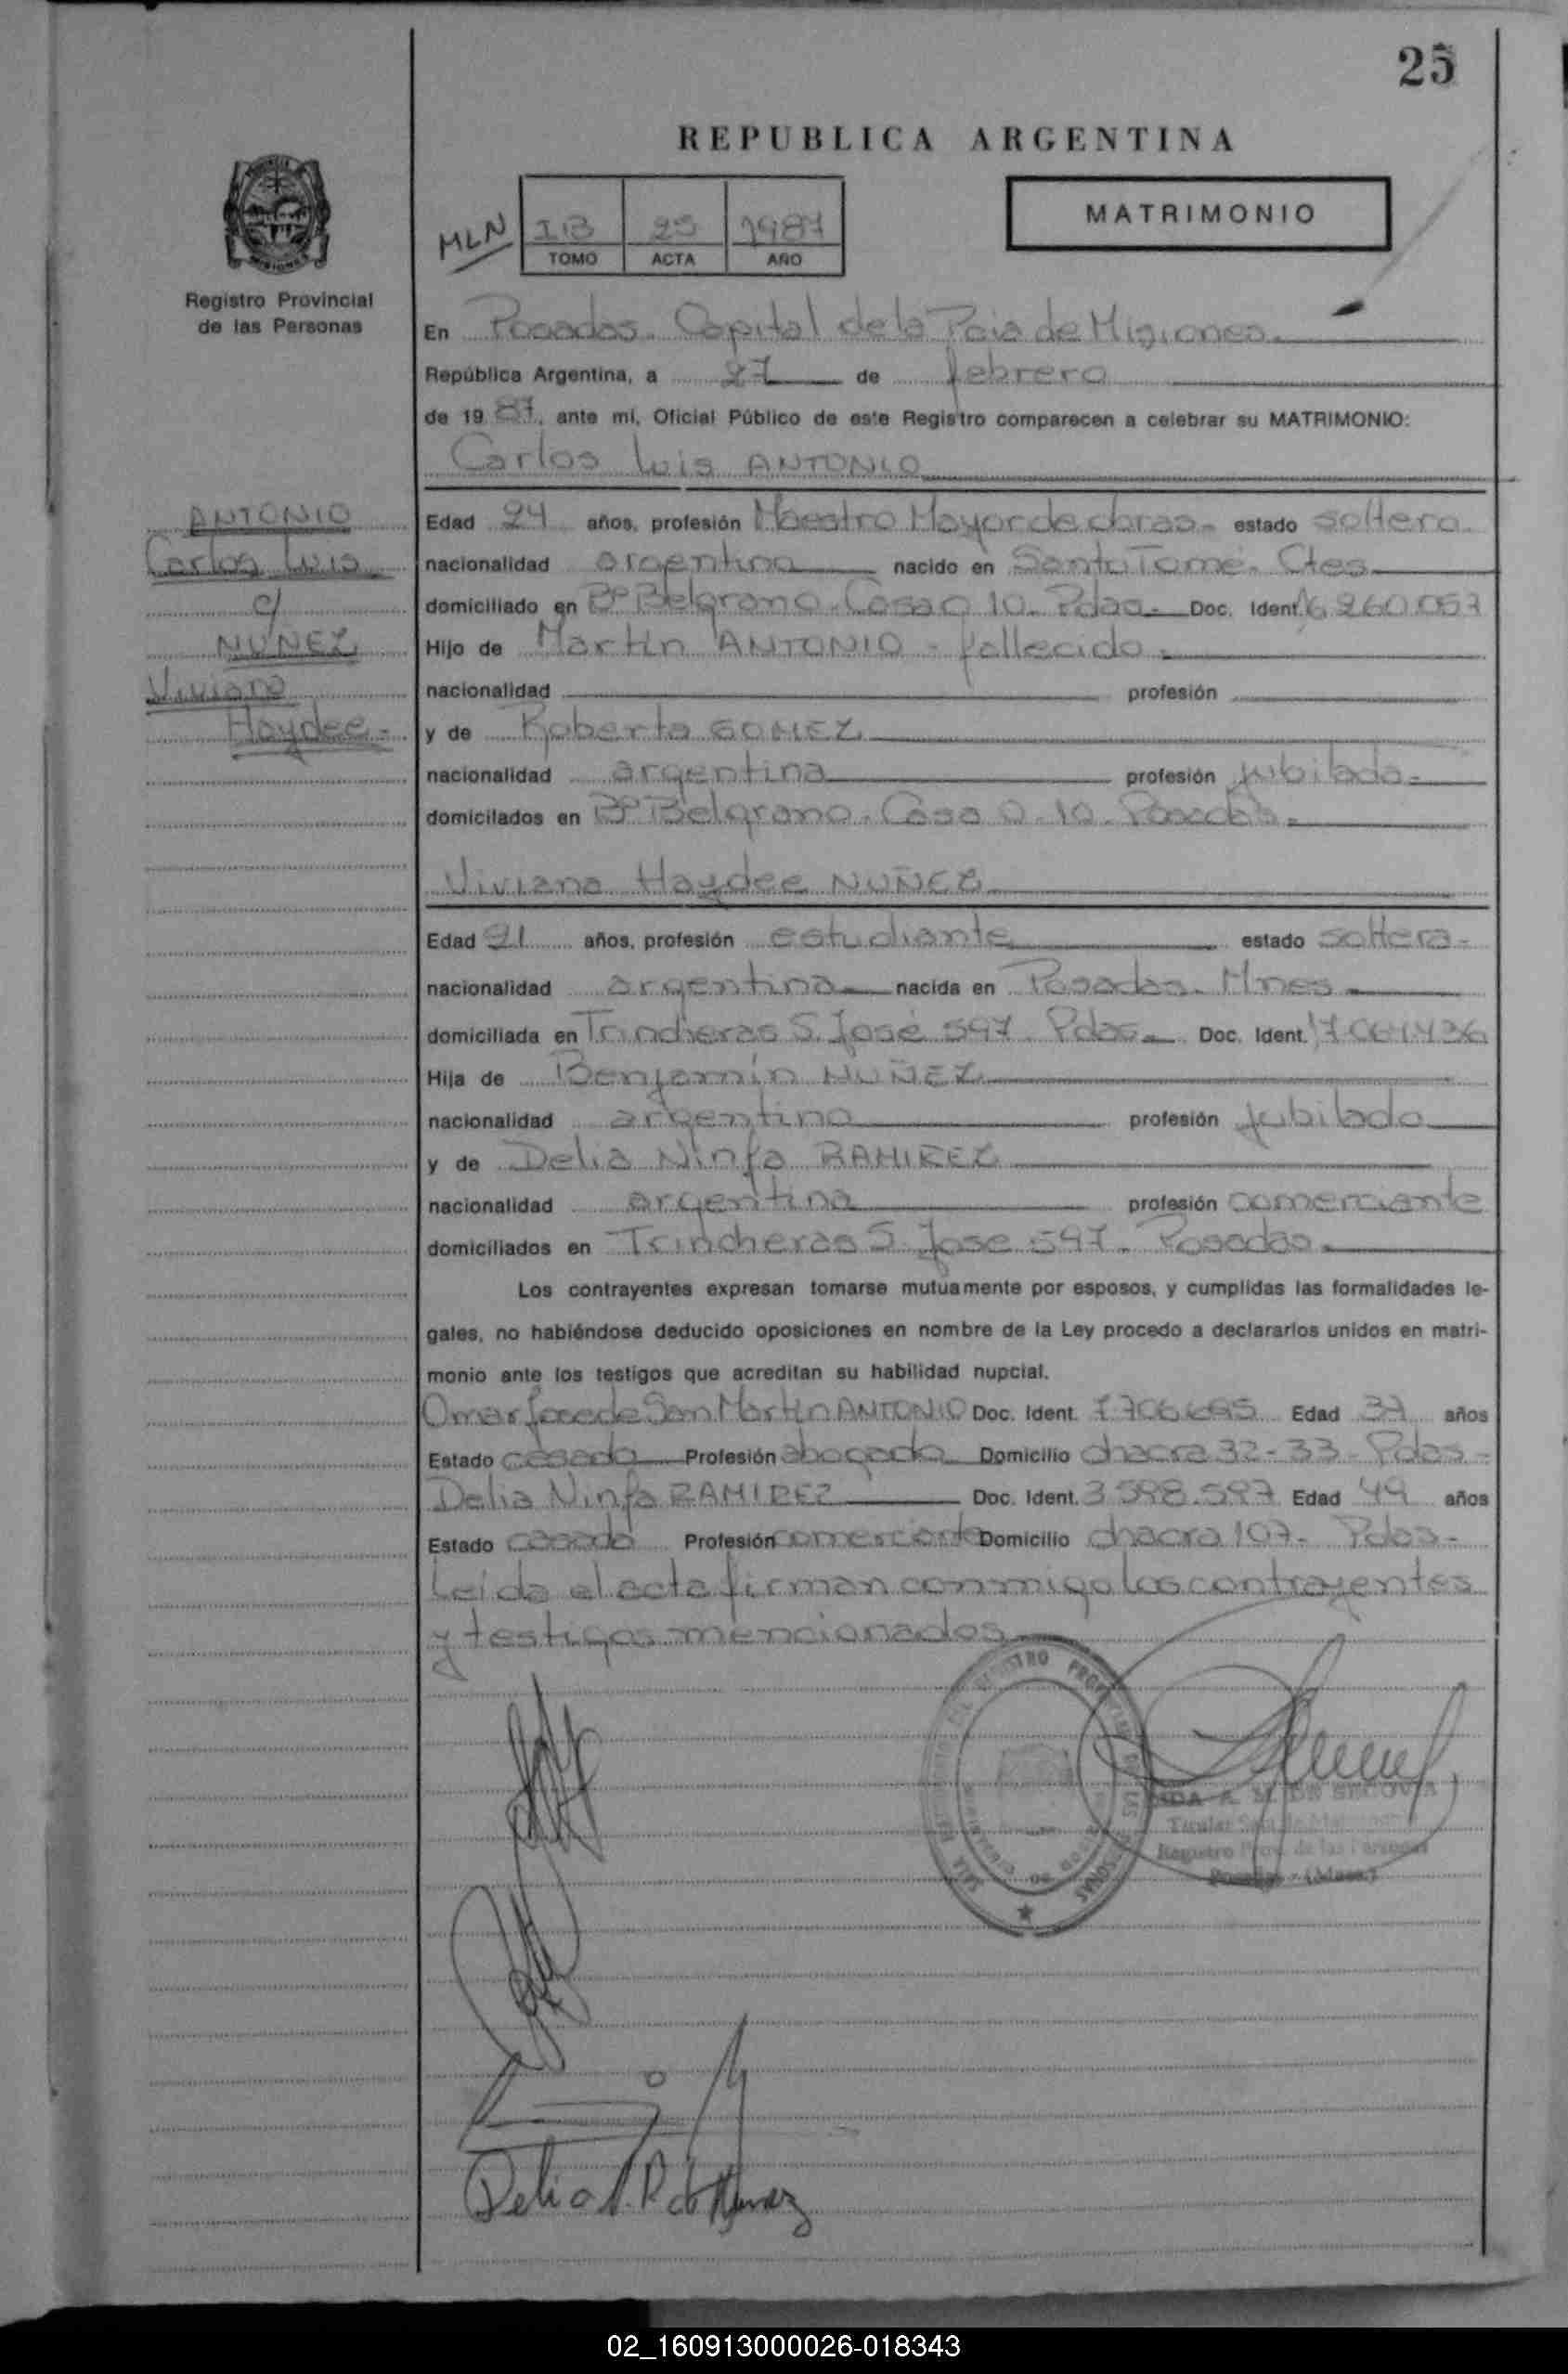 25
REPUBLICA ARGENTINA
MATRIMONIO
MLN
I B 25 1987
TOMO ACTA AÑO
PROVINCIA
MISIONES
Registro Provincial
de las Personas
En Posadas. Capital de la Pcia de Misiones.
República Argentina, a 27 de febrero
de 1987, ante mí, Oficial Público de este Registro comparecen a celebrar su MATRIMONIO:
Carlos Luis ANTONIO
ANTONIO
Carlos Luis
c/
NUÑEZ
Viviana
Haydee.-
Edad 24 años, profesión Maestro Mayor de obras.- estado soltero.
nacionalidad argentina nacido en Santo Tomé. Ctes.
domiciliado en Bº Belgrano. Casa O 10. Pdas.- Doc. Ident. 16.260.057
Hijo de Martin ANTONIO - fallecido.
nacionalidad profesión
y de Roberta GOMEZ
nacionalidad argentina profesión jubilada.
domicilados en Bº Belgrano. Casa O. 10. Posadas.
Viviana Haydee NUÑEZ
Edad 21 años, profesión estudiante estado soltera-
nacionalidad argentina nacida en Posadas. Mnes.
domiciliada en Trincheras S. José 597. Pdas. Doc. Ident. 17.064.436
Hija de Benjamín NUÑEZ
nacionalidad argentino profesión jubilado
y de Delia Ninfa RAMIREZ
nacionalidad argentina profesión comerciante
domiciliados en Trincheras S. Jose 597. Posadas.
Los contrayentes expresan tomarse mutuamente por esposos, y cumplidas las formalidades le-
gales, no habiéndose deducido oposiciones en nombre de la Ley procedo a declararlos unidos en matri-
monio ante los testigos que acreditan su habilidad nupcial.
Omar Jose de San Martin ANTONIO Doc. Ident. 7.706.695 Edad 37 años
Estado casado Profesión abogado Domicilio chacra 32-33- Pdas-
Delia Ninfa RAMIREZ Doc. Ident. 3.598.597 Edad 49 años
Estado casada Profesión comerciante Domicilio chacra 107- Pdas-
Leida el acta firman conmigo los contrayentes
y testigos mencionados
A. M. DE SEGOVIA
Titular
Registro Prov. de las Personas
Posadas - (Mnes.)
Delia N. R. de Nuñez
02_160913000026-018343